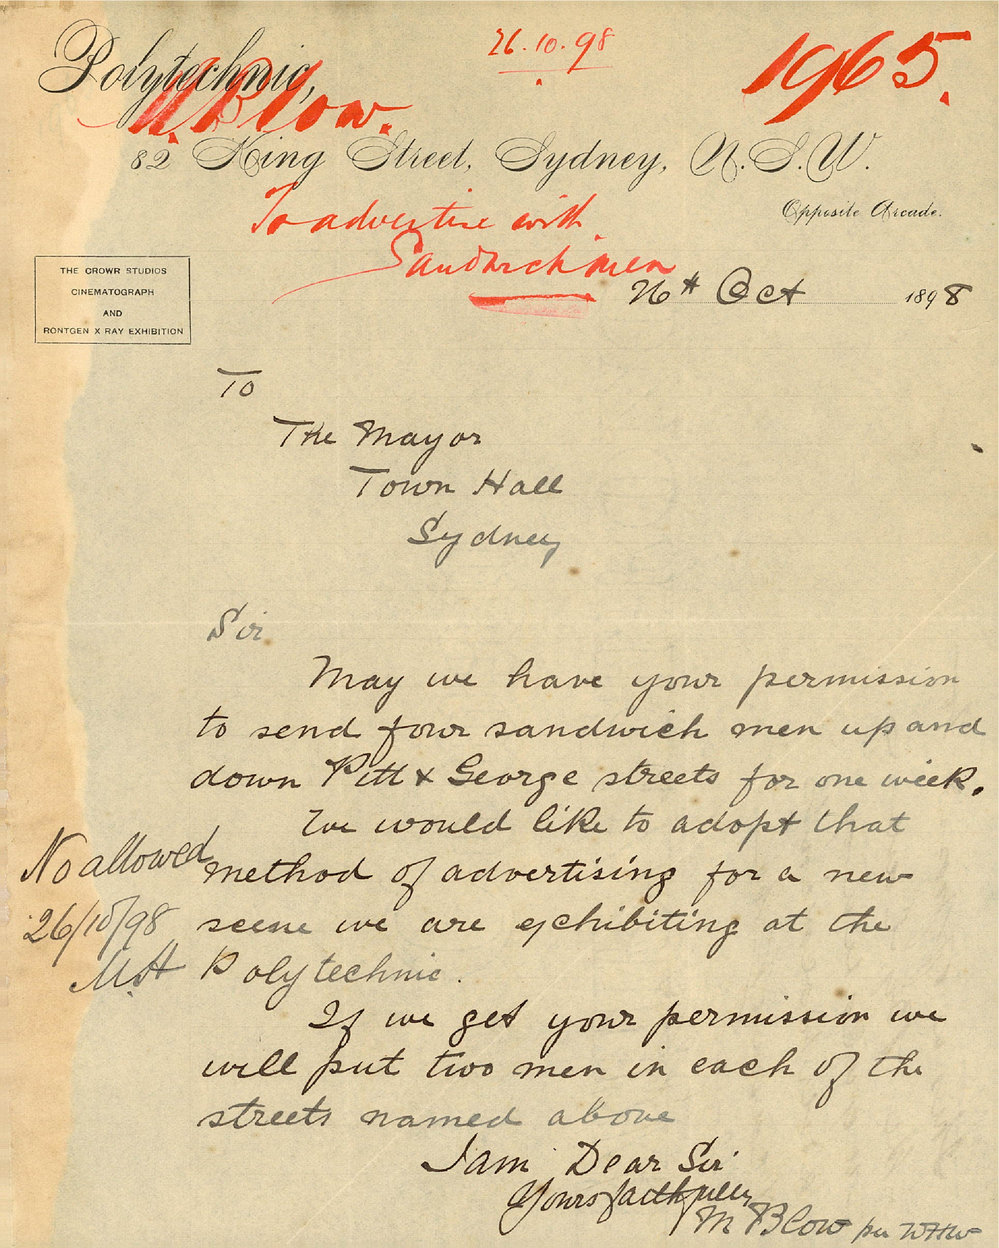 26.10.98
1965.
Polytechnic,
M. Blow.
82 King Street, Sydney, N.S.W.
Opposite Arcade.
To advertise with
Sandwich men
THE CROWN STUDIOS
CINEMATOGRAPH
AND
RONTGEN X RAY EXHIBITION
26th Oct 1898
To
The Mayor
Town Hall
Sydney
Sir
May we have your permission
to send four sandwich men up and
down Pitt & George streets for one week.
We would like to adopt that
method of advertising for a new
scene we are exhibiting at the
Polytechnic.
No allowed
26/10/98
M.H
If we get your permission we
will put two men in each of the
streets named above
I am Dear Sir
Yours faithfully
M Blow per WHW